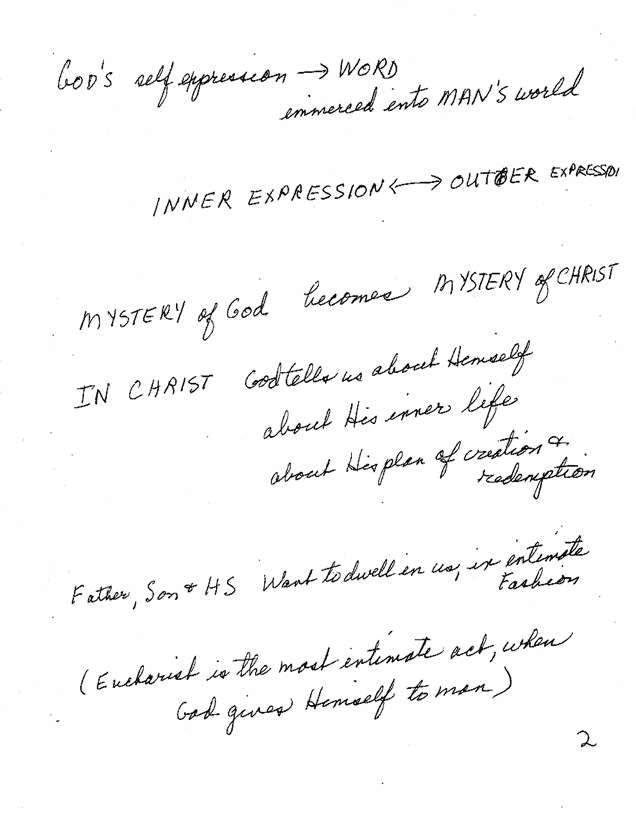 GOD'S self expression → WORD
immerced into MAN'S world
INNER EXPRESSION ←→ OUTER EXPRESSION
MYSTERY of God becomes MYSTERY of CHRIST
IN CHRIST God tells us about Himself
about His inner life
about His plan of creation &
redemption
Father, Son & HS Want to dwell in us, in intimate
Fashion
(Eucharist is the most intimate act, when
God gives Himself to man)
2